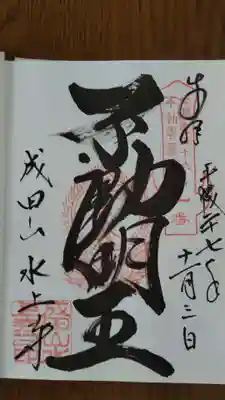 奉拝
平成二十七年
十一月三日
不動明王
成田山 水上寺